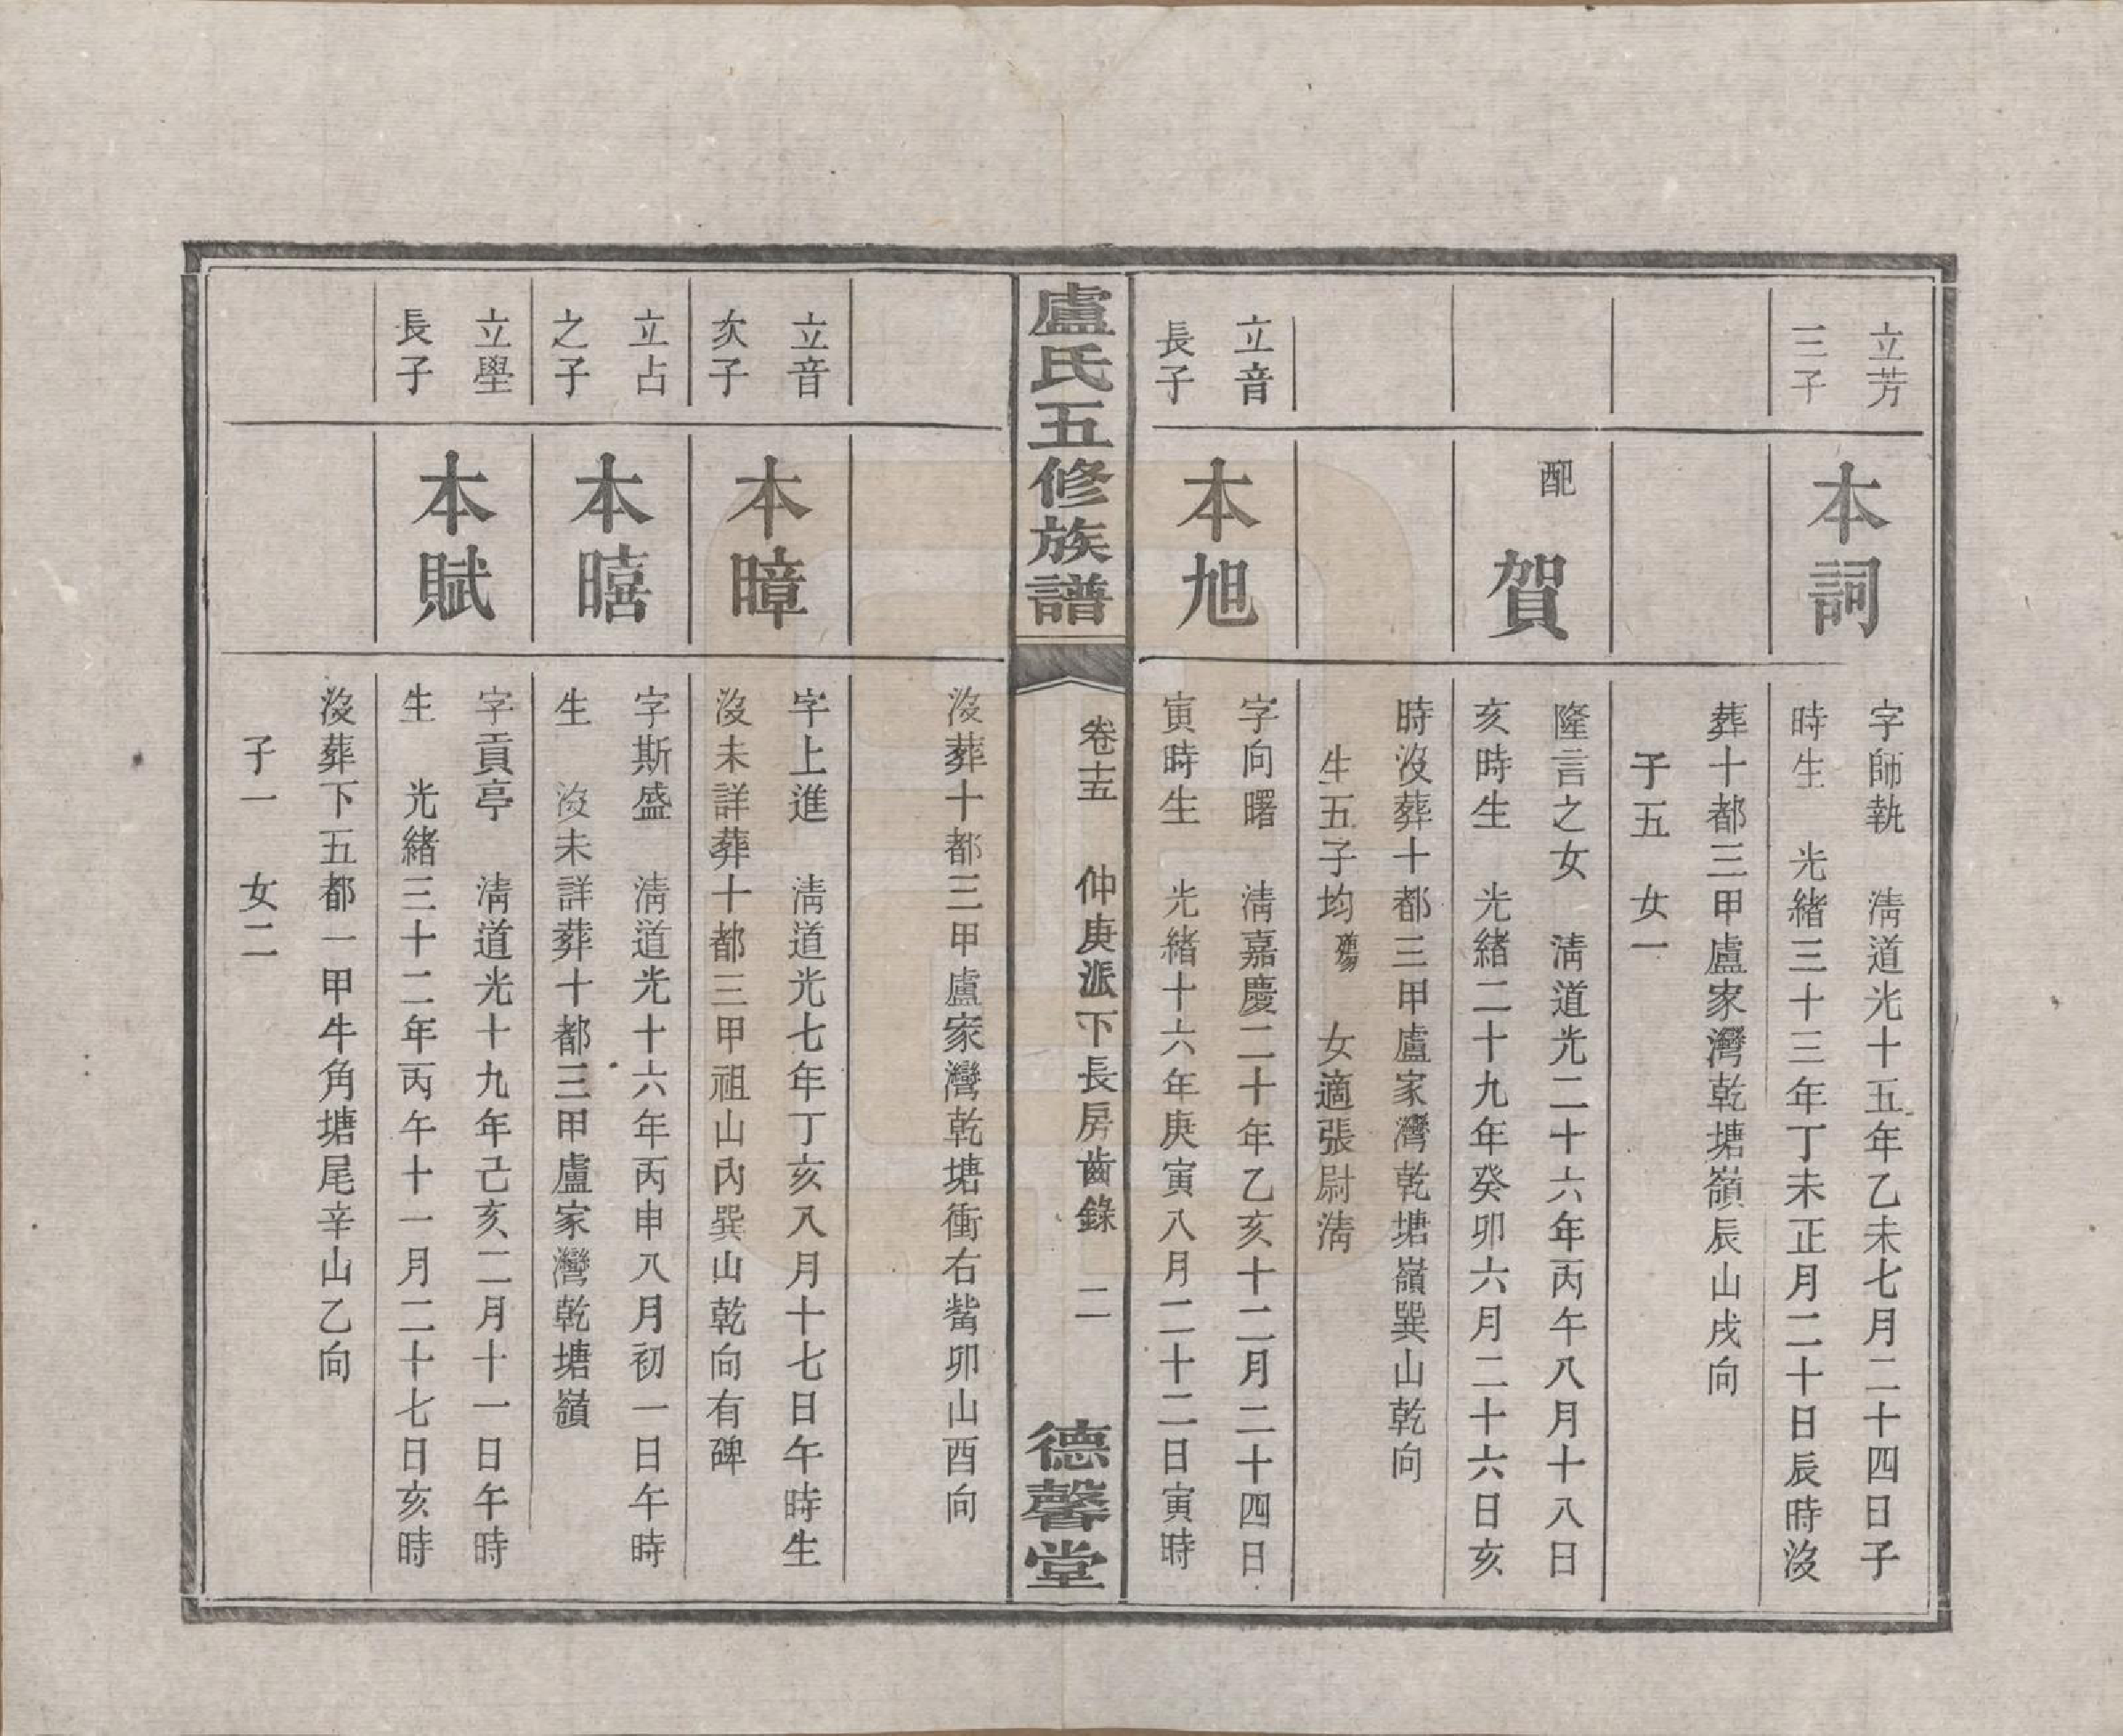 立芳
三子
本詞
字師執　淸道光十五年乙未七月二十四日子
時生　光緒三十三年丁未正月二十日辰時沒
葬十都三甲盧家灣乾塘嶺辰山戌向
子五　女一
配
賀
隆言之女　淸道光二十六年丙午八月十八日
亥時生　光緒二十九年癸卯六月二十六日亥
時沒葬十都三甲盧家灣乾塘嶺巽山乾向
生五子均　女適張尉淸
立音
長子
本旭
字向曙　淸嘉慶二十年乙亥十二月二十四日
寅時生　光緒十六年庚寅八月二十二日寅時
盧氏五修族譜
卷十五　仲庚派下長房齒錄　二
德馨堂
沒葬十都三甲盧家灣乾塘衝右觜卯山酉向
立音
次子
本暲
字上進　淸道光七年丁亥八月十七日午時生
沒未詳葬十都三甲祖山內巽山乾向有碑
立占
之子
本暿
字斯盛　淸道光十六年丙申八月初一日午時
生　沒未詳葬十都三甲盧家灣乾塘嶺
立學
長子
本賦
字貢亭　淸道光十九年己亥二月十一日午時
生　光緒三十二年丙午十一月二十七日亥時
沒葬下五都一甲牛角塘尾辛山乙向
子一　女二